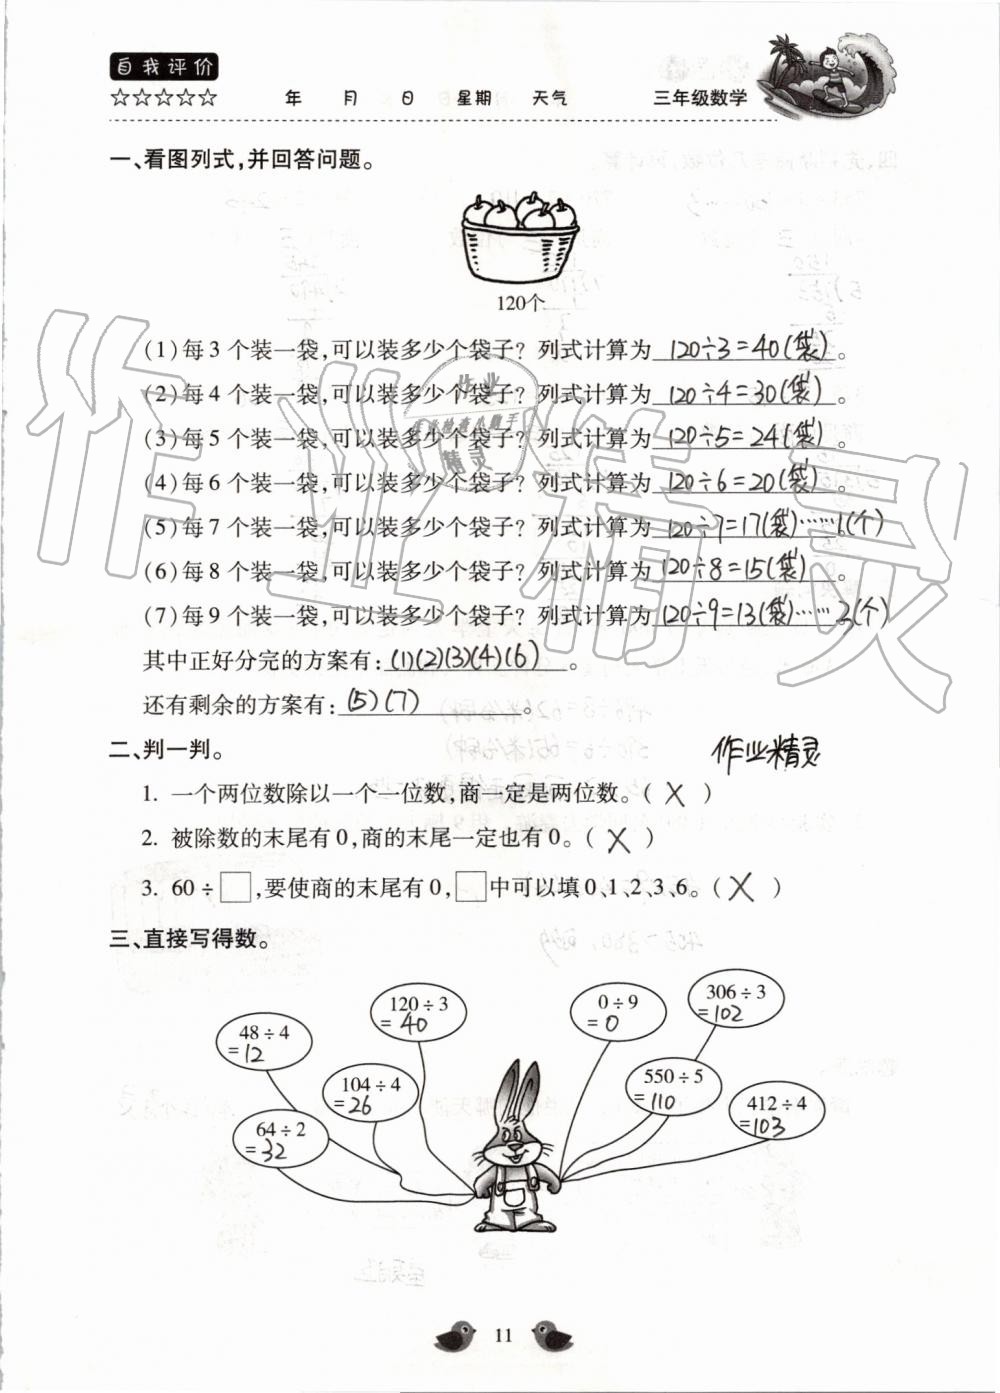 自我评价
☆☆☆☆☆ 年 月 日 星期 天气 三年级数学
一、看图列式,并回答问题。
120个
(1)每3个装一袋,可以装多少个袋子? 列式计算为 120÷3=40(袋) 。
(2)每4个装一袋,可以装多少个袋子? 列式计算为 120÷4=30(袋) 。
(3)每5个装一袋,可以装多少个袋子? 列式计算为 120÷5=24(袋) 。
(4)每6个装一袋,可以装多少个袋子? 列式计算为 120÷6=20(袋) 。
(5)每7个装一袋,可以装多少个袋子? 列式计算为 120÷7=17(袋)……1(个)
(6)每8个装一袋,可以装多少个袋子? 列式计算为 120÷8=15(袋) 。
(7)每9个装一袋,可以装多少个袋子? 列式计算为 120÷9=13(袋)……3(个)
其中正好分完的方案有: (1)(2)(3)(4)(6) 。
还有剩余的方案有: (5)(7) 。
二、判一判。
作业精灵
1. 一个两位数除以一个一位数,商一定是两位数。( X )
2. 被除数的末尾有0,商的末尾一定也有0。( X )
3. 60÷□,要使商的末尾有0,□中可以填0、1、2、3、6。( X )
三、直接写得数。
48÷4
=12
120÷3
=40
0÷9
=0
306÷3
=102
104÷4
=26
550÷5
=110
64÷2
=32
412÷4
=103
11
作业精灵
作业
作业检查小助手
精灵